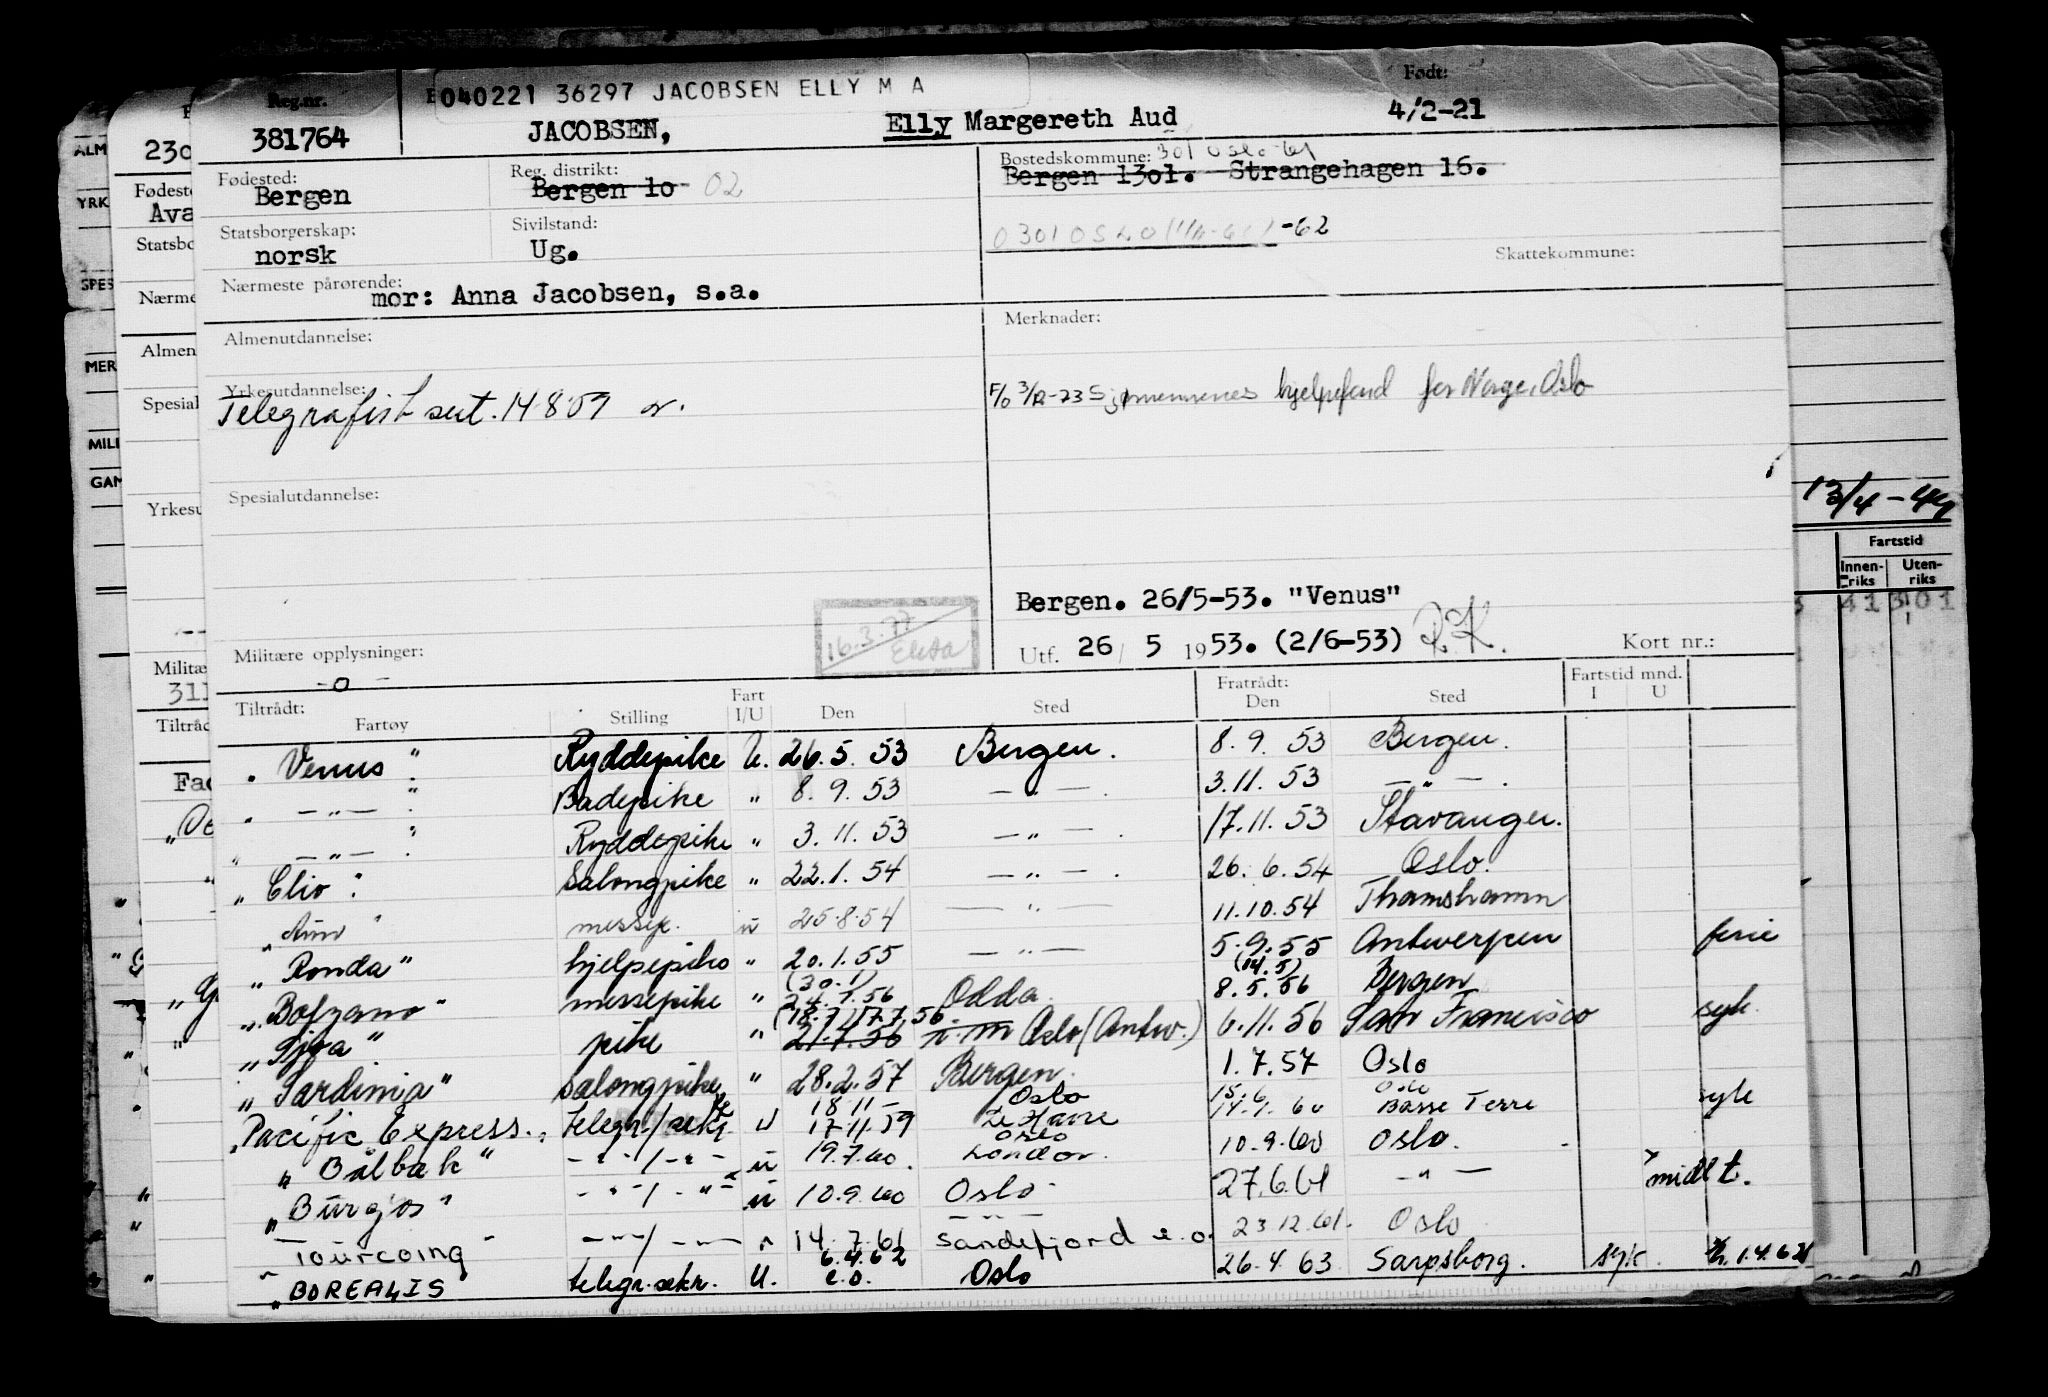 E040221 36297 JACOBSEN ELLY M A
Reg.nr. Født:
381764 JACOBSEN, Elly Margereth Aud 4/2-21
Fødested: Reg. distrikt: Bostedskommune: 301 Oslo -61
Bergen Bergen 1o 02 Bergen 13o1. Strangehagen 16.
Statsborgerskap: Sivilstand: 0301 OSLO -62
norsk Ug.
Skattekommune:
Nærmeste pårørende: mor: Anna Jacobsen, s.a.
Almenutdannelse: Merknader:
Yrkesutdannelse:
Telegrafist sert. 14.8.59
F/o 3/12-73 Sjømennenes hjelpefond for Norge, Oslo
Spesialutdannelse:
Bergen. 26/5-53. "Venus"
16.3.77
Utf. 26 / 5 1953. (2/6-53) R.K. Kort nr.:
Militære opplysninger:
- o -
Tiltrådt: Fratrådt: Fartstid mnd.
Fartøy Stilling Fart I/U Den Sted Den Sted I U
" Venus " Ryddepike U. 26.5.53 Bergen. 8.9.53 Bergen.
" — " — " Badepike " 8.9.53 — " — . 3.11.53 — " — .
" — " — " Ryddepike " 3.11.53 — " — . 17.11.53 Stavanger.
" Clio " Salongpike " 22.1.54 — " — . 26.6.54 Oslo.
" " messep. u 25.8.54 — " — 11.10.54 Thamshamn
" Ronda " hjelpepike " 20.1.55 — " — 5.9.55 Antwerpen ferie
" Bolzano " messepike " (30.1) 24.1.56 Odda (14.5) 8.5.56 Bergen
" Sjoa " pike " 17.7.56 21.7.56 Oslo (Antw.) 6.11.56 San Francisco syk.
" Sardinia " salongpike " 28.2.57 Bergen. 1.7.57 Oslo
" Pacific Express. " telegr./sekr. U 18.11 - 17.11.59 Oslo Le Havre 15.6 14.1.60 Oslo Basse Terre syk
" Bålbak " — " — / — " — u 19.7.60 Oslo London. 10.9.60 Oslo.
" Burgos " — " — / — " — u 10.9.60 Oslo 27.6.61 — " — midl t.
" Tourcoing " — " — / — " — " 14.7.61 Sandefjord e.o. 23.12.61. Oslo
" BOREALIS telegr. sekr. U. 6.4.62 e.o. Oslo 26.4.63 Sarpsborg. syk.
230
Fødeste
Ava
Statsbo
Nærme
Almen
Spesial
Yrkesu
Militæ
311
Tiltråd
ALM
YRK
SPES
MER
MILI
GAM
13/4-44
Fartstid
Innen-riks Uten-riks